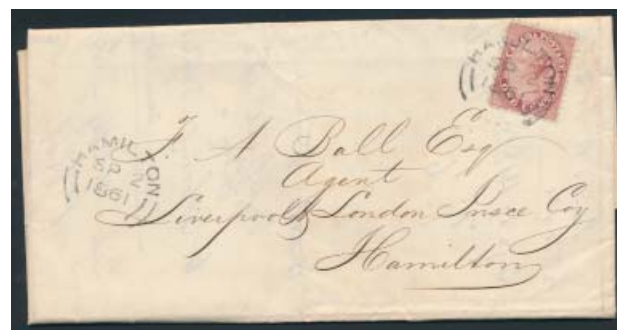 HAMILTON
HAMILTON
SP 2
1861
F. A Ball Esq
Agent
Liverpool & London Insce Coy
Hamilton